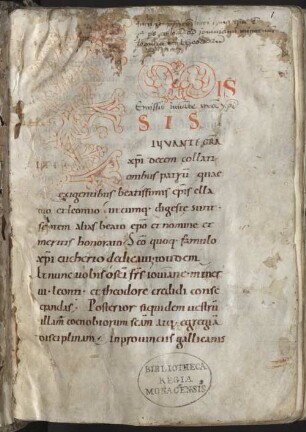 1
IS
Emissis
S I S
IUUANTE GRA
xpi decem collati
onibus patrum quae
exigentibus beatissimis epis ella
dio et leontio incumq; digeste sunt
septem alias beato epo et nomine et
meritis honorato. Sco quoq; famulo
xpi eucherio dedicaui. totidem
et nunc uobis o sci frs iouiane miner
ui. leonti. et theodore credidi conse
crandas. Posterior siquidem uestrum
illam coenobiorum scam atq; egregia
disciplinam. in prouinciis gallicanis
BIBLIOTHECA
REGIA
MONACENSIS.